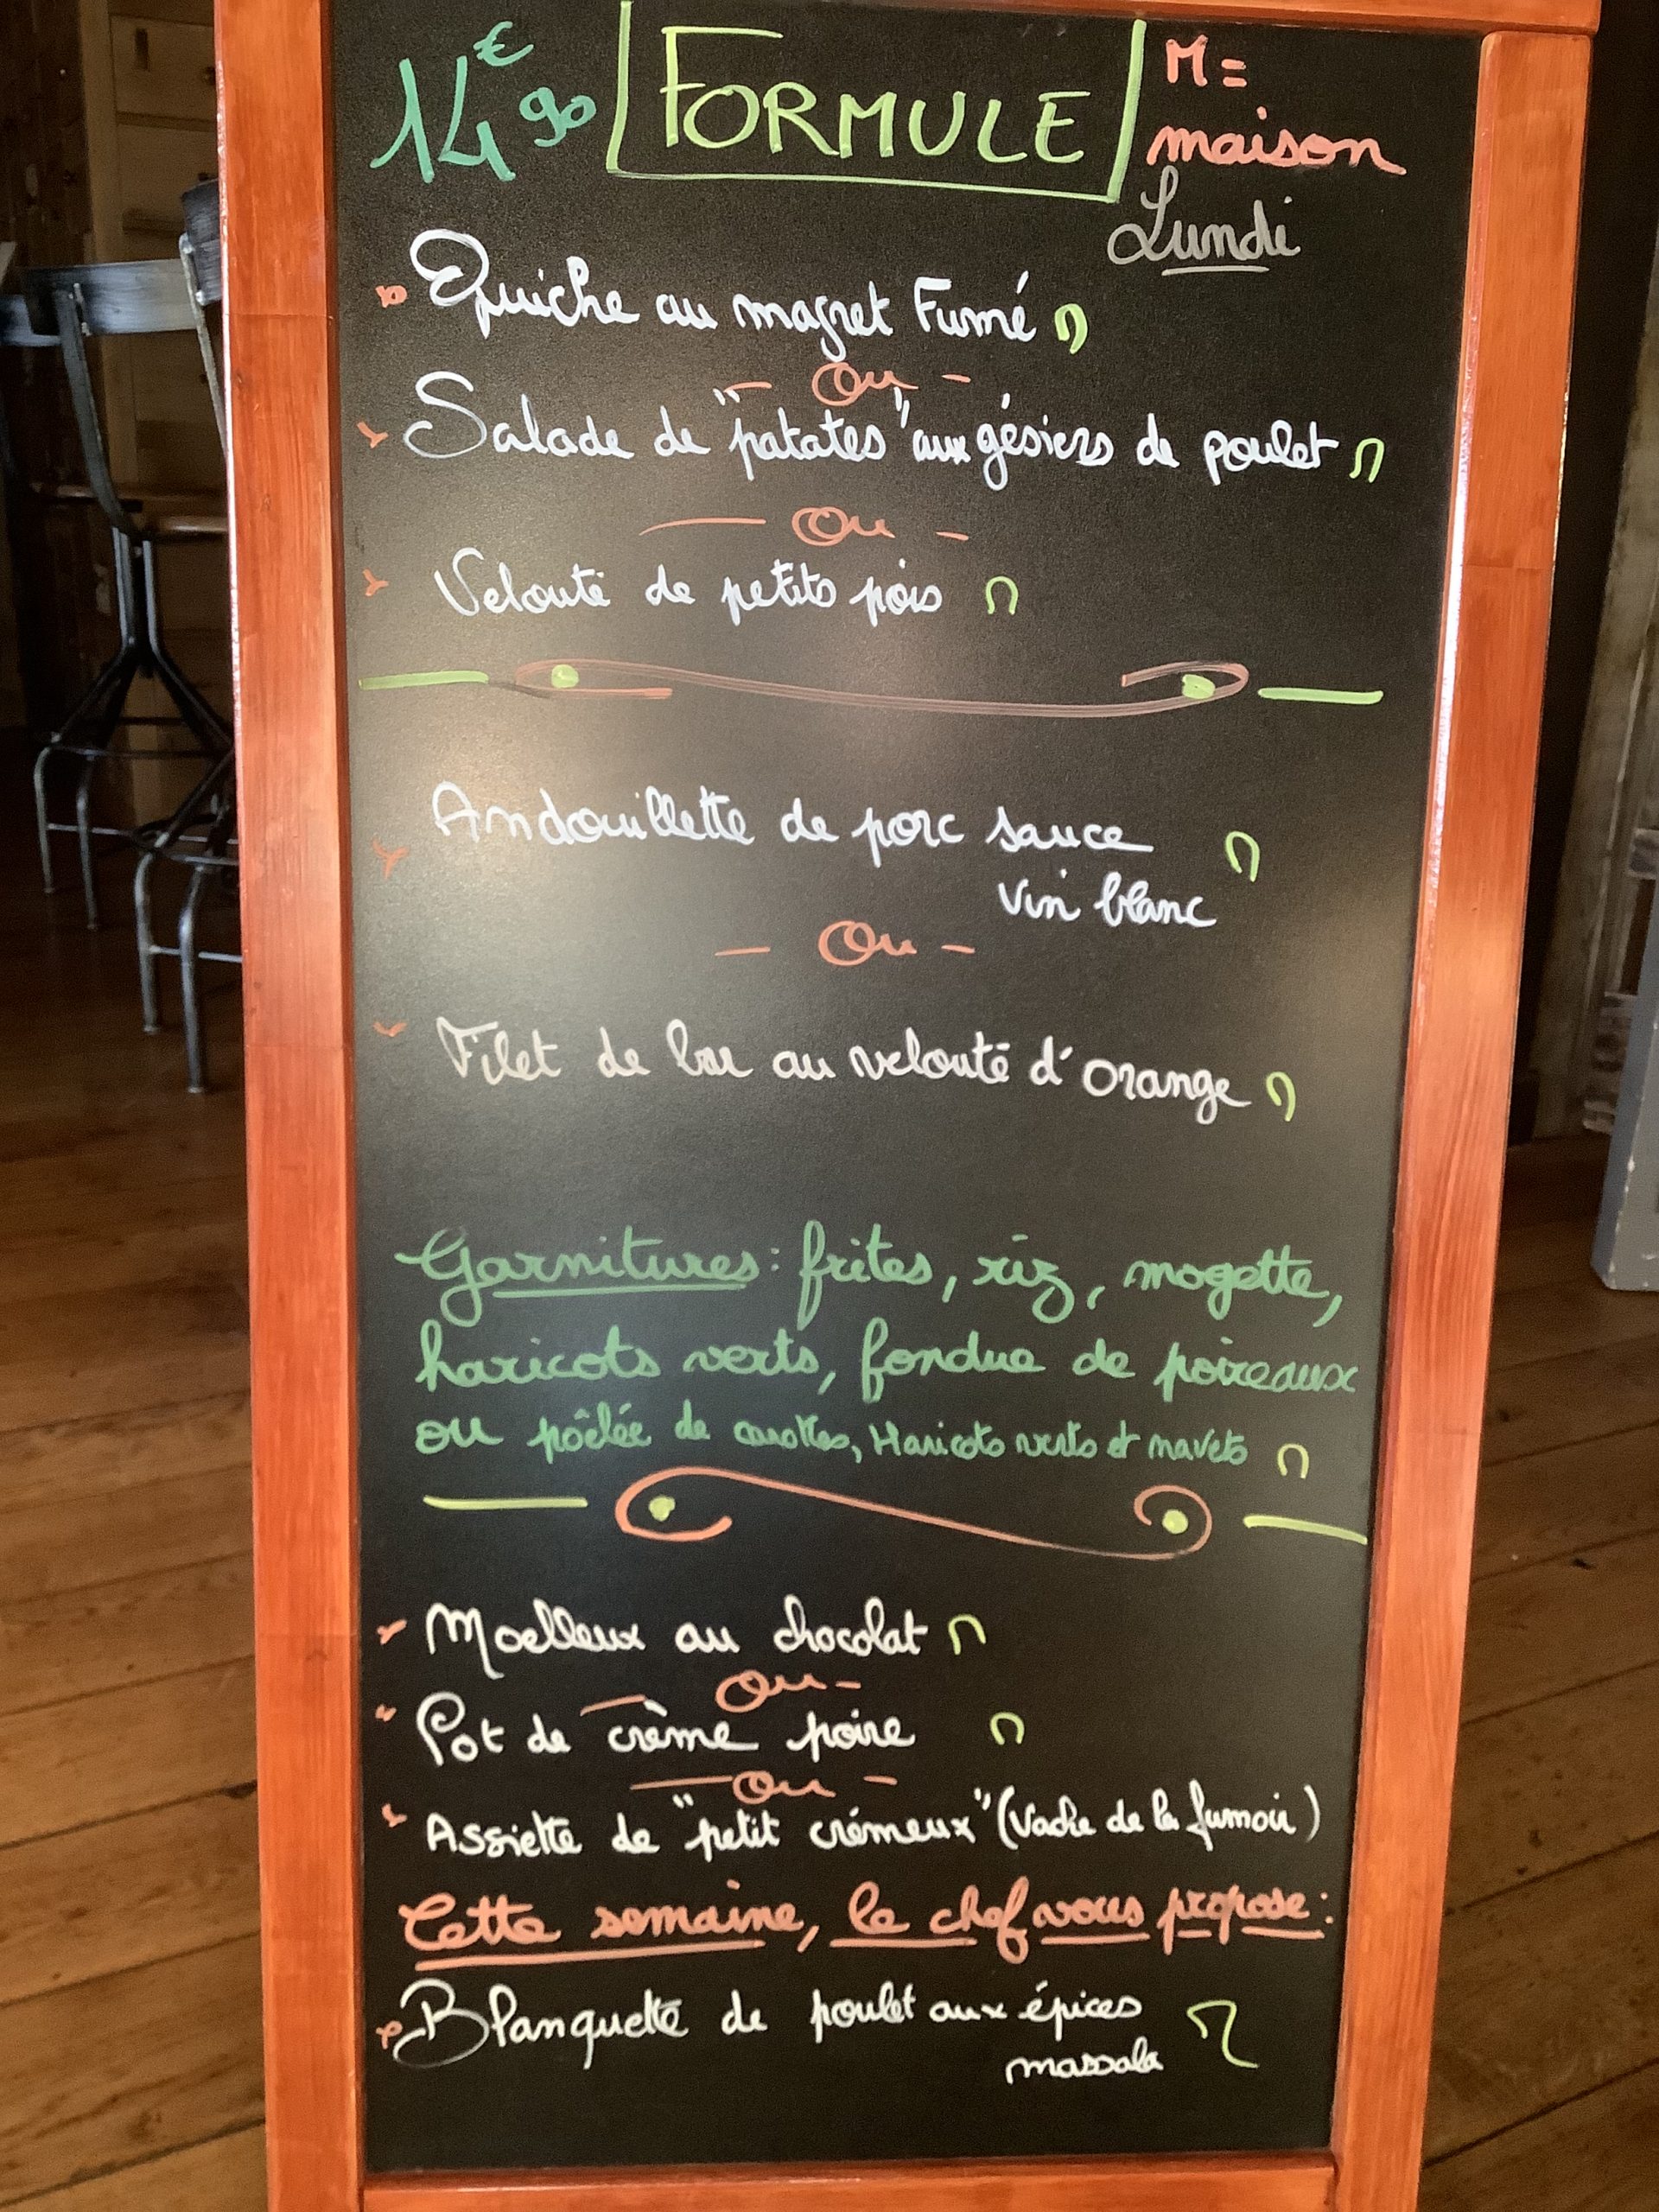 14€90 FORMULE M = maison
Lundi
Quiche au magret Fumé
- Ou -
Salade de "patates" aux gésiers de poulet
- Ou -
Velouté de petits pois
Andouillette de porc sauce
vin blanc
- Ou -
Filet de bar au velouté d'orange
Garnitures : frites, riz, mogette,
haricots verts, fondue de poireaux
ou pôêlée de carottes, Haricots verts et navets
Moelleux au chocolat
- Ou -
Pot de crème poire
- Ou -
Assiette de "petit crémeux" (Vache de la fumoir)
Cette semaine, le chef vous propose :
Blanquette de poulet aux épices
massala